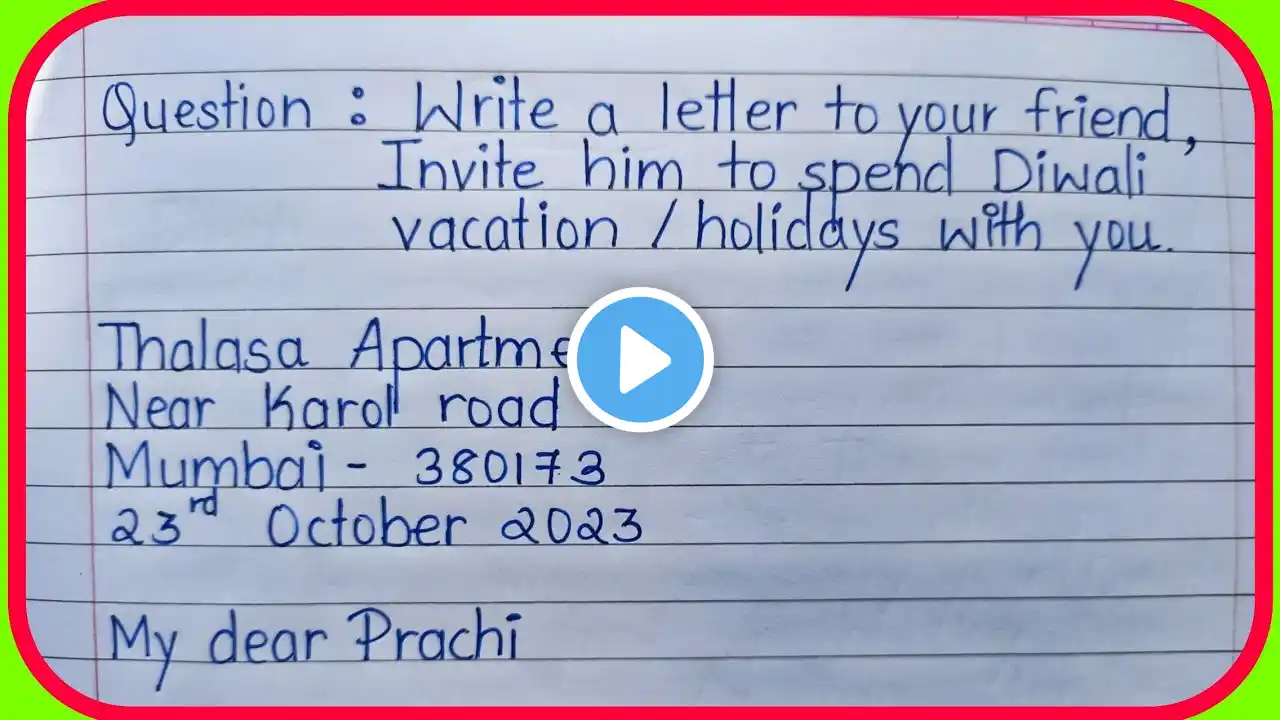 Question : Write a letter to your friend,
Invite him to spend Diwali
vacation / holidays with you.
Thalasa
Near Karol road
Mumbai - 380173
23rd October 2023
My dear Prachi